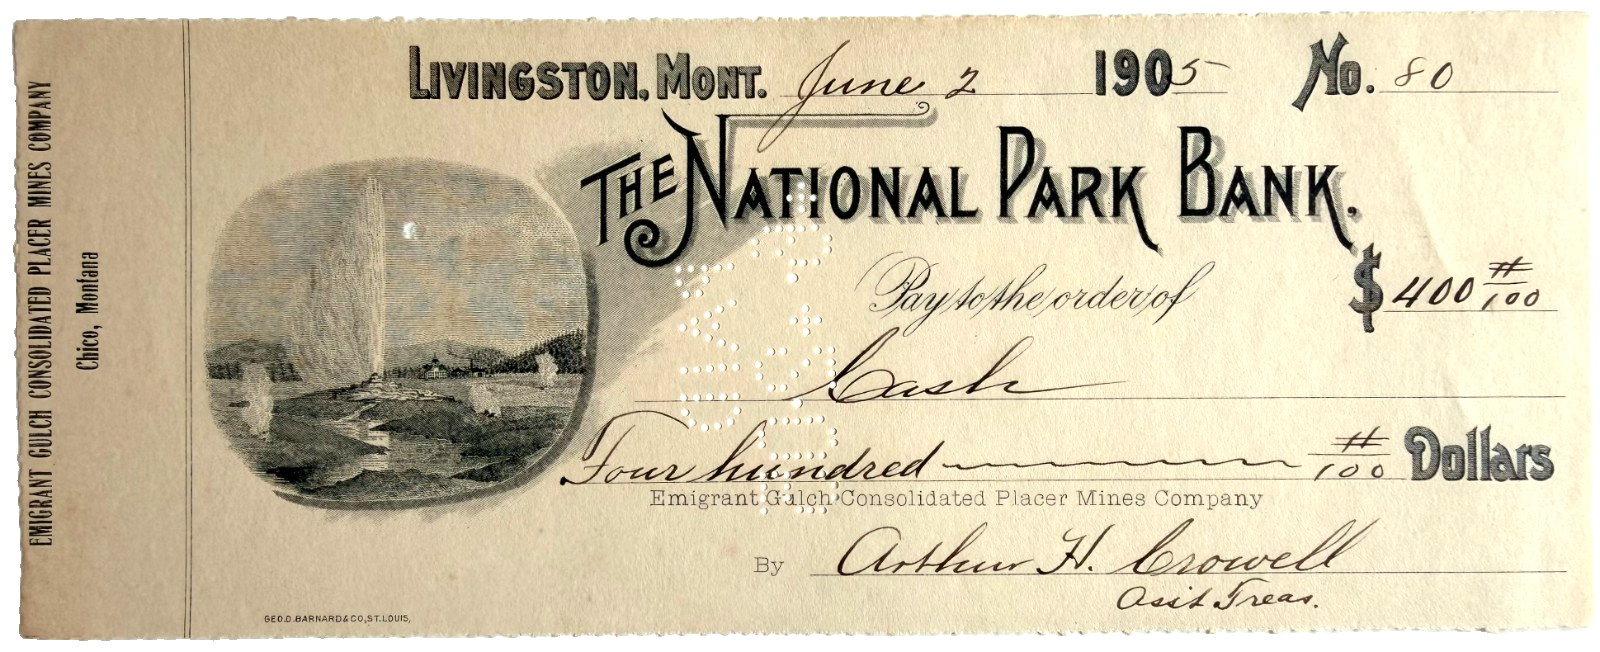 EMIGRANT GULCH CONSOLIDATED PLACER MINES COMPANY
Chico, Montana
LIVINGSTON, MONT. June 2 1905 No. 80
THE NATIONAL PARK BANK.
Pay to the order of $400 #/100
Cash
Four hundred #/100 Dollars
Emigrant Gulch Consolidated Placer Mines Company
By Arthur H. Crowell
Asst Treas.
GEO. D. BARNARD & CO, ST. LOUIS,